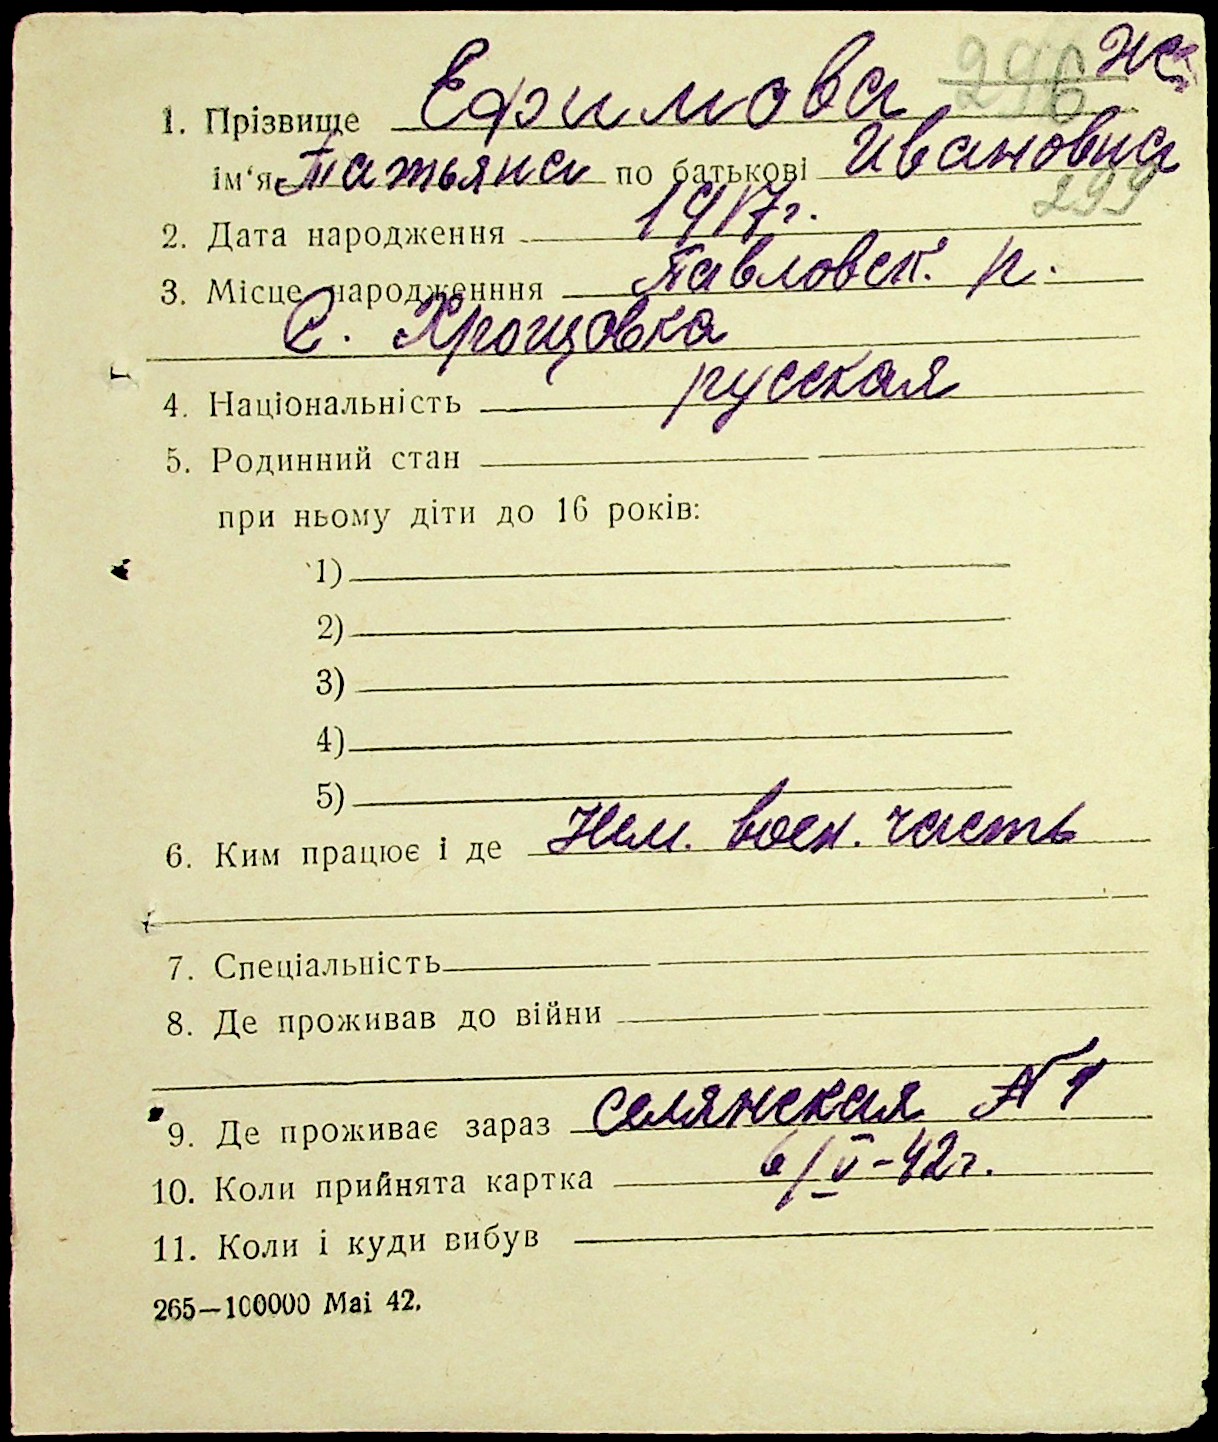 296 ж
1. Прізвище Ефимова
ім‘я Татьяна по батькові Ивановна
299
2. Дата народження 1917г.
3. Місце народженння Павловск. р.
С. Хрощовка
4. Національність русская
5. Родинний стан
при ньому діти до 16 років:
1)
2)
3)
4)
5)
6. Ким працює і де Нем. воен. часть
7. Спеціальність
8. Де проживав до війни
9. Де проживає зараз Селянская № 1
10. Коли прийнята картка 6/V-42г.
11. Коли і куди вибув
265—100000 Mai 42.